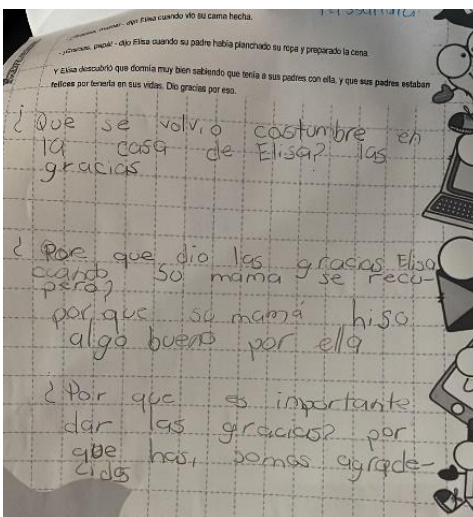 - ¡Gracias, mamá! - dijo Elisa cuando vio su cama hecha.
- ¡Gracias, papá! - dijo Elisa cuando su padre había planchado su ropa y preparado la cena.
Y Elisa descubrió que dormía muy bien sabiendo que tenía a sus padres con ella, y que sus padres estaban
felices por tenerla en sus vidas. Dio gracias por eso.
¿Que se volvio costumbre en
la casa de Elisa? las
gracias
¿Por que dio las gracias Elisa
cuando so mama se recu-
pero?
por que su mamá hiso
algo bueno por ella
¿Por que es importante
dar las gracias? por
que hasi somos agrade-
cidos